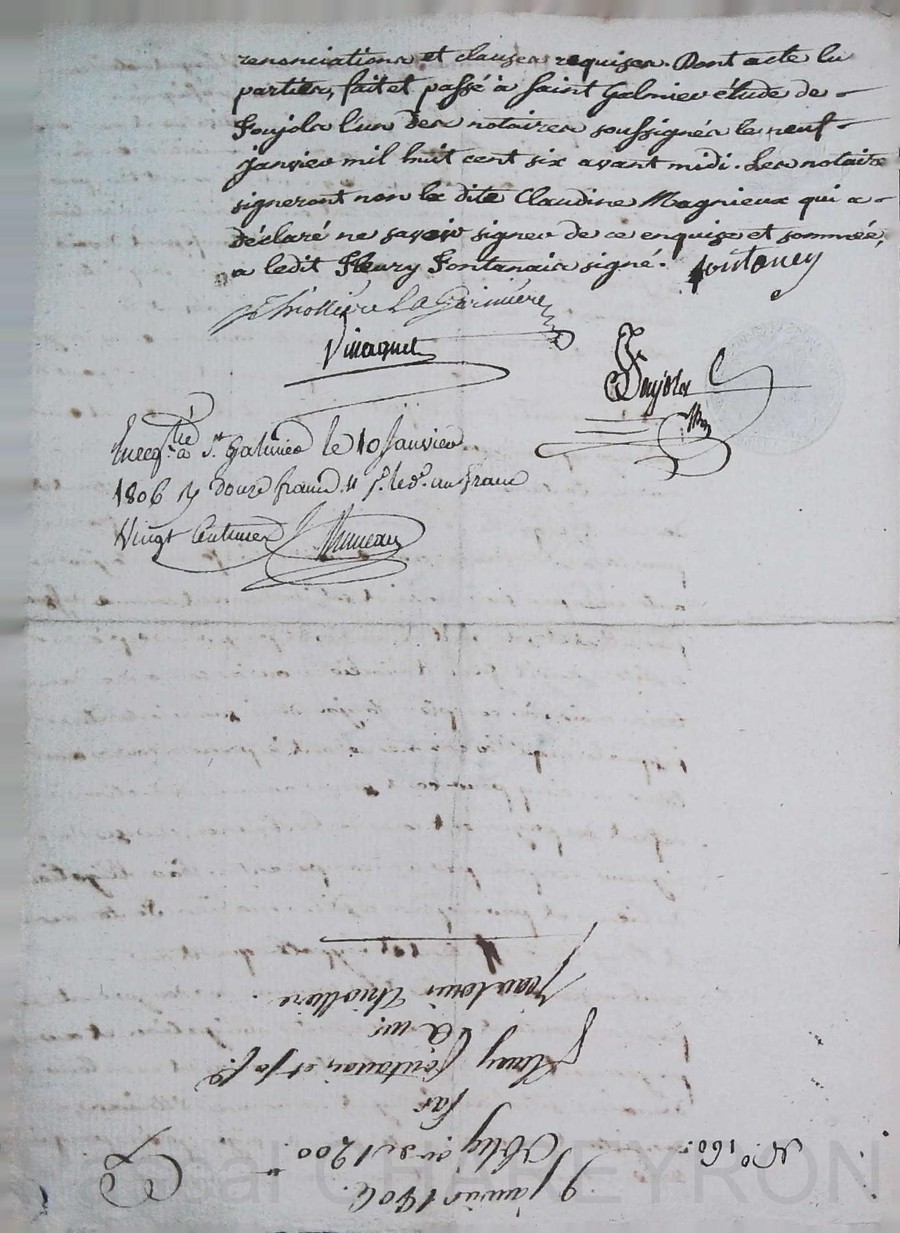 renonciations et clauses requises. Dont acte lu
parties, fait et passé à Saint Galmier étude de
Poujola l'un des notaires soussignés le neuf
janvier mil huit cent six avant midi. Les notaire
signeront non la dite Claudine Magnieux qui a
déclaré ne savoir signer de ce enquise et sommée,
a ledit Fleury Fontanais signé. fontaney
thiollière La Garinière
Vinagnet
Poujola
Nre
Enregtré à St. Galmier le 10 Janvier
1806 douze francs le dr. un franc
Vingt Centimes
9 janvier 1806.
N.° 160.
Oblig on de 1200.
Par
Fleury fontanais, et sa fe
à mr
Jean louis thiollière.
Pascal CHAVEYRON